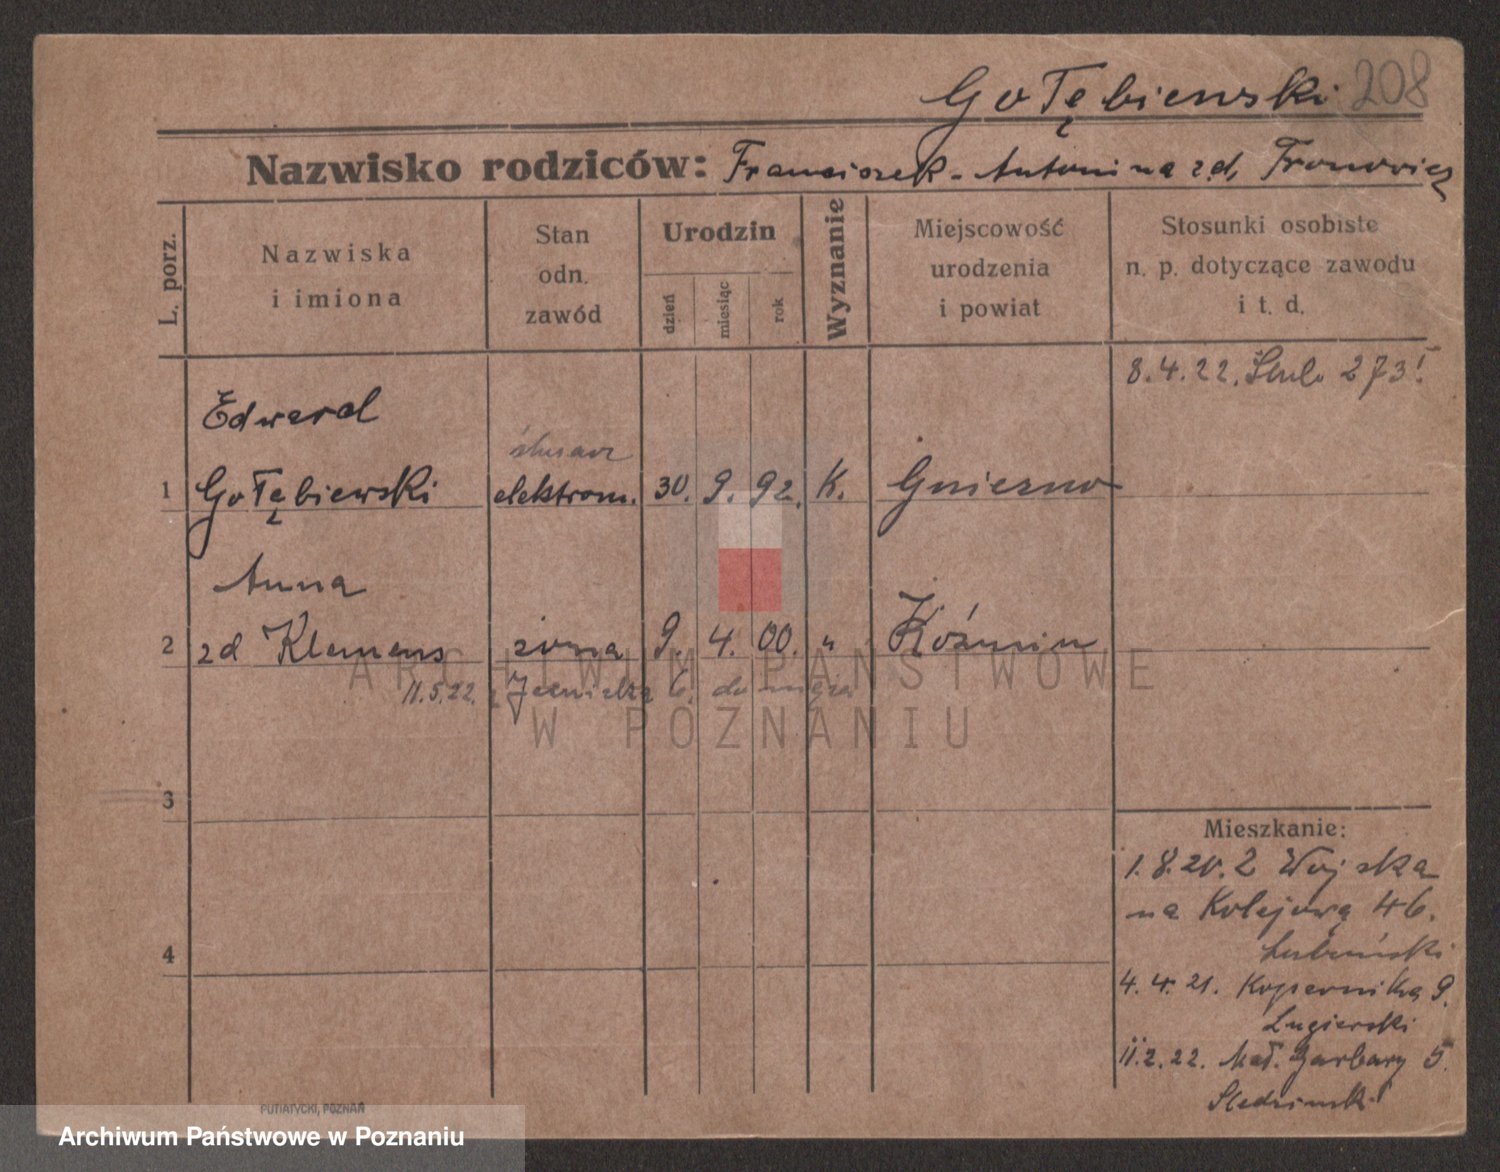 Gołębiewski 208
Nazwisko rodziców: Franciszek - Antonina zd. Fronowicz
L. porz.
Nazwiska
i imiona
Stan
odn.
zawód
Urodzin
dzień
miesiąc
rok
Wyznanie
Miejscowość
urodzenia
i powiat
Stosunki osobiste
n. p. dotyczące zawodu
i t. d.
8.4.22. 273!
Edward
ślusarz
1 Gołębiewski elektrom. 30. 9. 92. K. Gniezno
Anna
2 zd Klemens żona 9. 4. 00. „ Koźmin
11.5.22. z 6. do męża
ARCHIWUM PAŃSTWOWE
W POZNANIU
3
4
Mieszkanie:
1.8.20. z Wojska
na Kolejową 46.
Lubiński
4.4.21. Kopernika 9.
Lugierski
11.2.22. Mał. Garbary 5.
Sledzinski
PUTIATYCKI, POZNAŃ
Archiwum Państwowe w Poznaniu